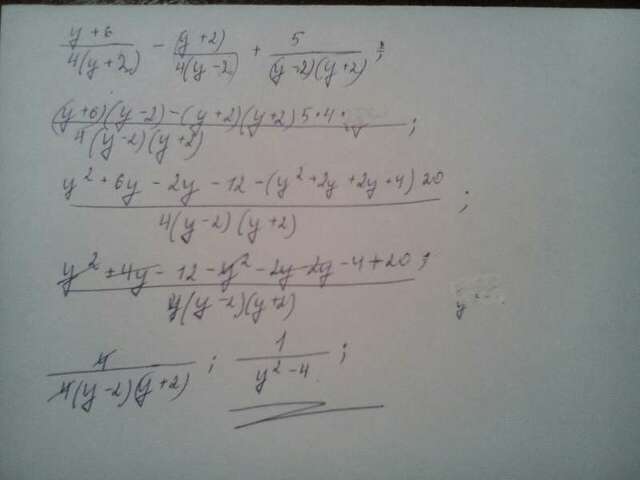 (y+6)/(4(y+2)) - (y+2)/(4(y-2)) + 5/((y-2)(y+2));
((y+6)(y-2)-(y+2)(y+2)5·4·)/(4(y-2)(y+2));
(y²+6y-2y-12-(y²+2y+2y+4)20)/(4(y-2)(y+2));
(y²±4y-12-y²-2y-2y-4+20)/(y(y-2)(y+2));
4/(4(y-2)(y+2)); 1/(y²-4);